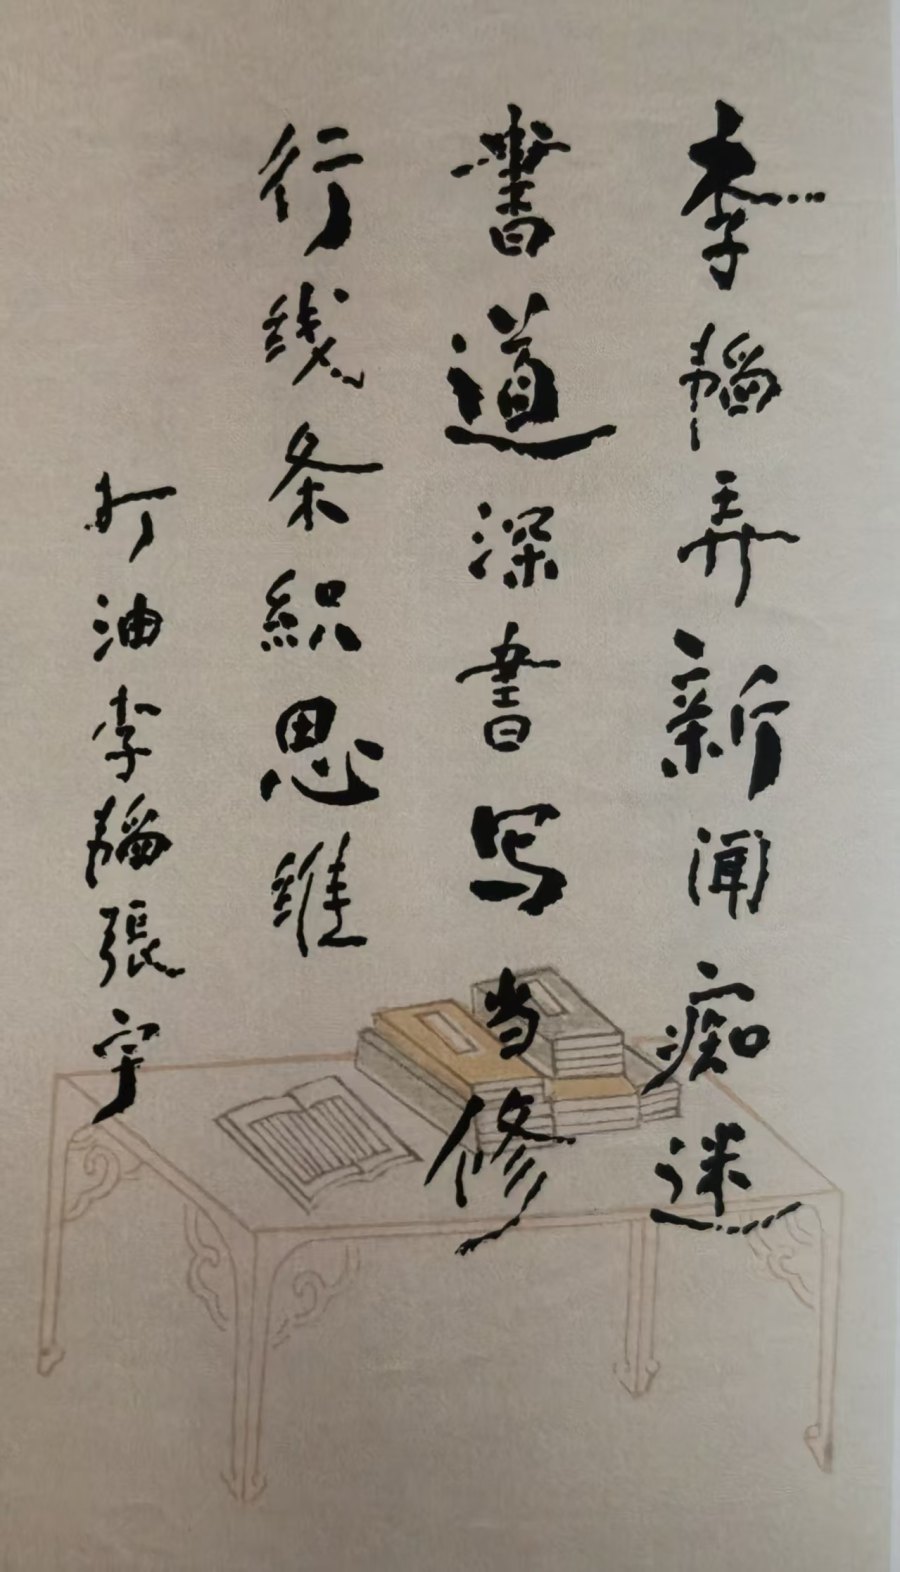 李韬弄新闻痴迷
书道深书写当修
行线条织思维
打油李韬張宇